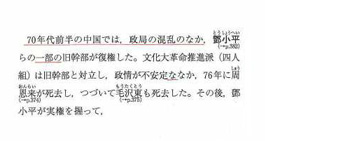 70年代前半の中国では，政局の混乱のなか，鄧小平
とうしょうへい
(→p.382)
らの一部の旧幹部が復権した。文化大革命推進派（四人
組）は旧幹部と対立し，政情が不安定ななか，76年に周
しゅう
恩来が死去し，つづいて毛沢東も死去した。その後，鄧
おんらい
(→p.374)
もうたくとう
(→p.375)
小平が実権を握って，